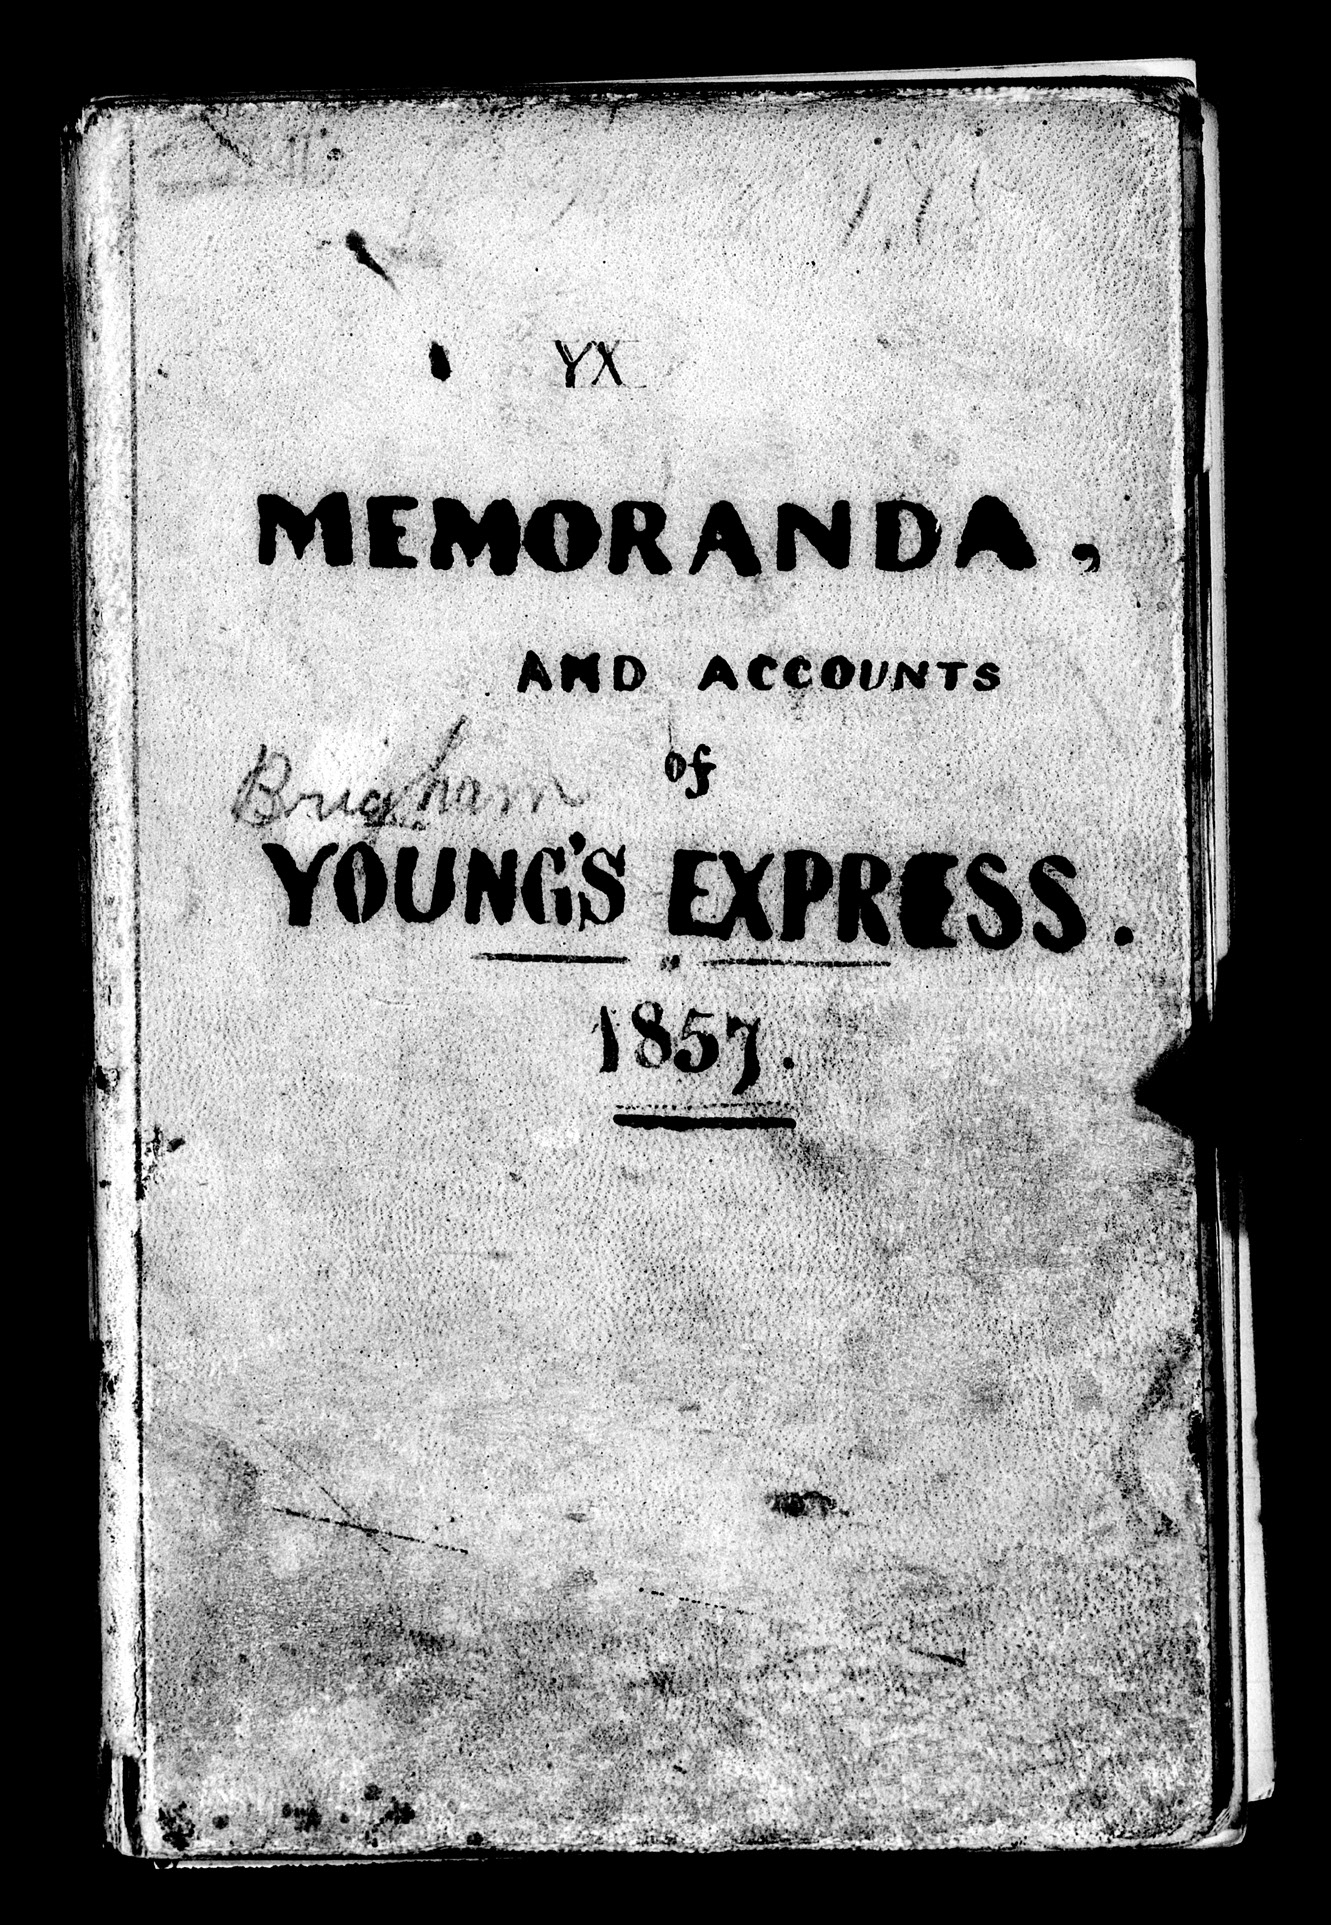 YX
MEMORANDA,
AND ACCOUNTS
of
Brigham
YOUNG'S EXPRESS.
1857.